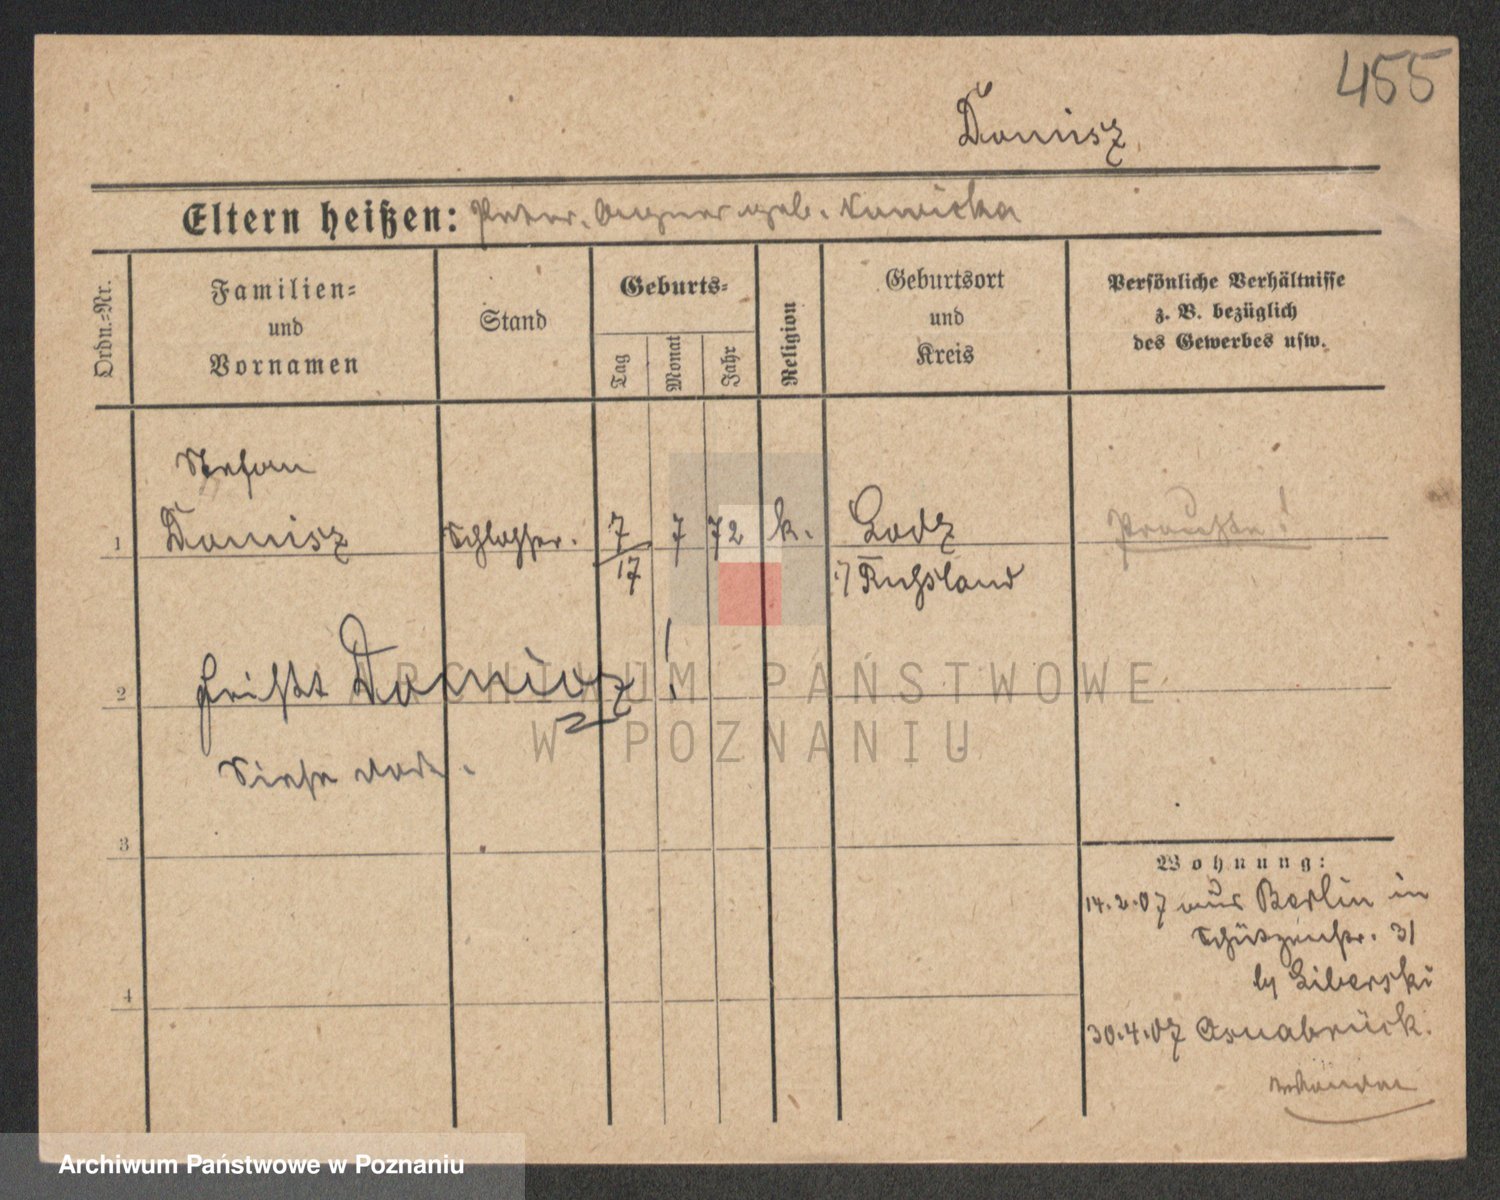 455
Domisz
Eltern heißen: Peter. geb. Nowicka
Ordn.-Nr.
Familien-
und
Vornamen
Stand
Geburts-
Tag
Monat
Jahr
Religion
Geburtsort
und
Kreis
Persönliche Verhältnisse
z. B. bezüglich
des Gewerbes usw.
Stefan
1 Domisz Schlosser. 7 7 72 k. Lodz
17 Rußland
2 heißt Domisz !
Siehe dort.
3
4
Wohnung:
14.2.07 aus Berlin in
Schützenstr. 31
by Liberski
30.4.07 Osnabrück.
ARCHIWUM PAŃSTWOWE
W POZNANIU
Archiwum Państwowe w Poznaniu